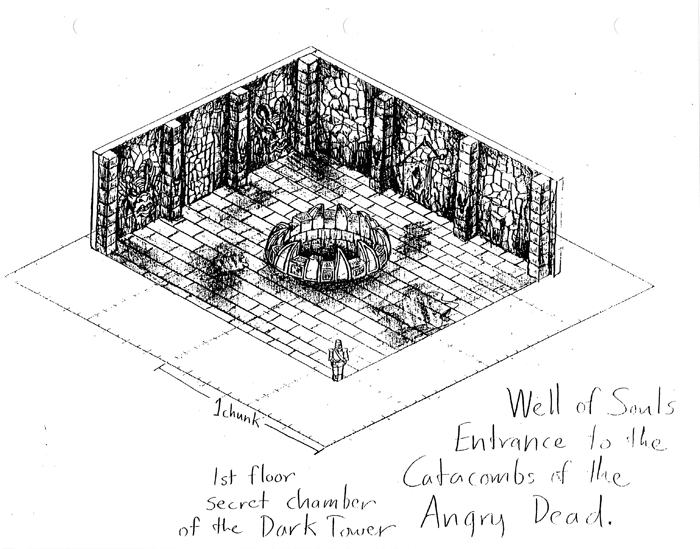 1chunk
1st floor
secret chamber
of the Dark Tower
Well of Souls
Entrance to the
Catacombs of the
Angry Dead.